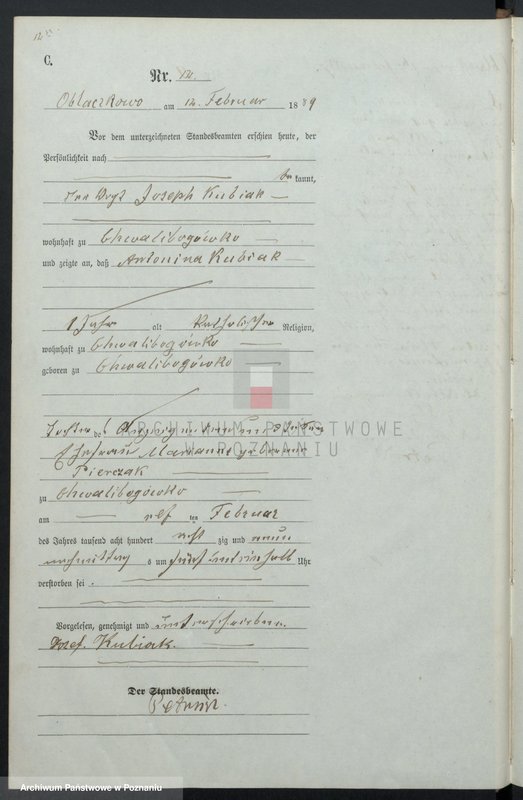 12
C.
Nr. 12.
Oblaczkowo am 12. Februar 1889
Vor dem unterzeichneten Standesbeamten erschien heute, der
Persönlichkeit nach
bekannt,
der Vogt Joseph Kubiak
wohnhaft zu Chwalibogówko
und zeigte an, daß Antonina Kubiak
1 Jahr alt katholischer Religion,
wohnhaft zu Chwalibogówko
geboren zu Chwalibogówko
Tochter des Anzeigenden und seiner
Ehefrau Marianna geborene
Pierczak
zu Chwalibogówko
am elf ten Februar
des Jahres tausend acht hundert acht zig und neun
nachmittags um fünf und einhalb Uhr
verstorben sei.
Vorgelesen, genehmigt und unterschrieben.
Josef Kubiak.
Der Standesbeamte.
ARCHIWUM PAŃSTWOWE
W POZNANIU
Archiwum Państwowe w Poznaniu